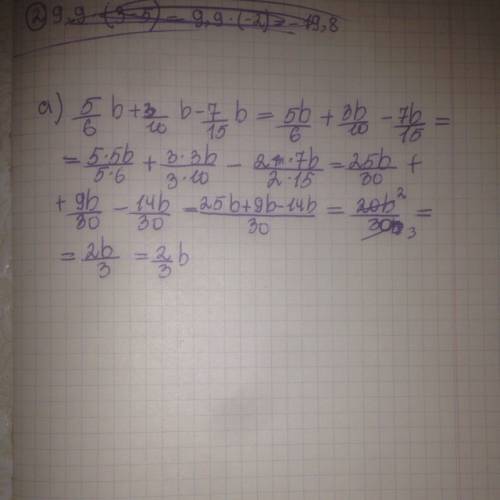 ② 9,9·(3-5) = 9,9·(-2) = -19,8
а) 5/6 b + 3/10 b - 7/15 b = 5b/6 + 3b/10 - 7b/15 =
= 5·5b/5·6 + 3·3b/3·10 - 2·7b/2·15 = 25b/30 +
+ 9b/30 - 14b/30 = 25b+9b-14b/30 = 20b²/30₃ =
= 2b/3 = 2/3 b